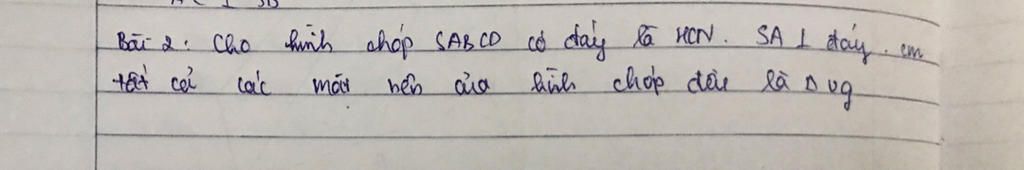 Bài 2: Cho hình chóp SABCD có đáy là HCN. SA ⊥ đáy. cm
tất cả các mặt bên của hình chóp đều là Δ vg